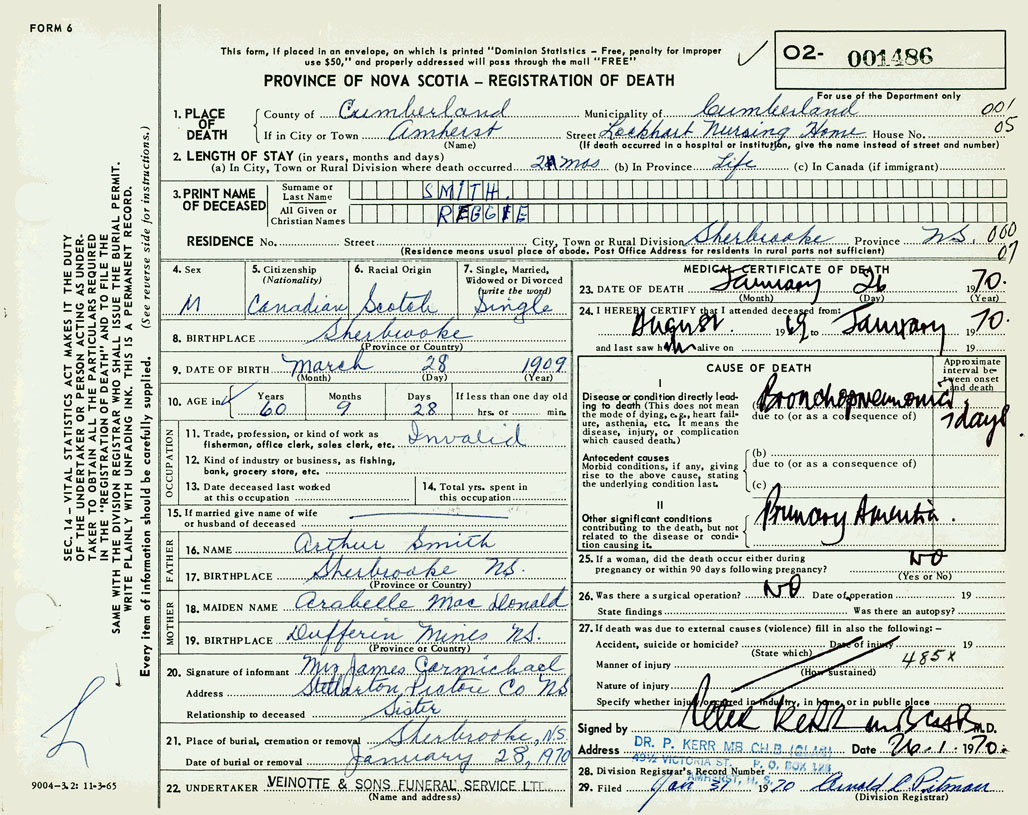 FORM 6
This form, if placed in an envelope, on which is printed "Dominion Statistics – Free, penalty for improper
use $50," and properly addressed will pass through the mail "FREE"
02- 001486
PROVINCE OF NOVA SCOTIA – REGISTRATION OF DEATH
For use of the Department only
1. PLACE OF DEATH
County of Cumberland Municipality of Cumberland 001
If in City or Town Amherst Street Lockhart Nursing Home House No. 05
(Name) (If death occurred in a hospital or institution, give the name instead of street and number)
2. LENGTH OF STAY (in years, months and days)
(a) In City, Town or Rural Division where death occurred mos (b) In Province Life (c) In Canada (if immigrant)
3. PRINT NAME OF DECEASED
Surname or Last Name SMITH.
All Given or Christian Names REGGIE
RESIDENCE No. Street City, Town or Rural Division Sherbrooke Province N.S. 060
(Residence means usual place of abode. Post Office Address for residents in rural parts not sufficient) 07
4. Sex M
5. Citizenship (Nationality) Canadian
6. Racial Origin Scotch
7. Single, Married, Widowed or Divorced (write the word) Single
8. BIRTHPLACE Sherbrooke
(Province or Country)
9. DATE OF BIRTH March 28 1909
(Month) (Day) (Year)
10. AGE in Years 60 Months 9 Days 28 If less than one day old
hrs. or min.
OCCUPATION
11. Trade, profession, or kind of work as
fisherman, office clerk, sales clerk, etc. Invalid
12. Kind of industry or business, as fishing,
bank, grocery store, etc.
13. Date deceased last worked
at this occupation
14. Total yrs. spent in
this occupation
15. If married give name of wife
or husband of deceased
FATHER
16. NAME Arthur Smith
17. BIRTHPLACE Sherbrooke N.S.
(Province or Country)
MOTHER
18. MAIDEN NAME Arabelle MacDonald
19. BIRTHPLACE Dufferin Mines N.S.
(Province or Country)
20. Signature of informant Mrs James Carmichael
Address Stellarton Pictou Co NS
Relationship to deceased Sister
21. Place of burial, cremation or removal Sherbrooke, N.S.
Date of burial or removal January 28, 1970
22. UNDERTAKER VEINOTTE & SONS FUNERAL SERVICE LTD.
(Name and address)
MEDICAL CERTIFICATE OF DEATH
23. DATE OF DEATH January 26 1970.
(Month) (Day) (Year)
24. I HEREBY CERTIFY that I attended deceased from:
August 1969 to January 1970.
and last saw him alive on 19
CAUSE OF DEATH
Approximate interval between onset and death
I
Disease or condition directly leading
to death (This does not mean
the mode of dying, e.g., heart failure,
asthenia, etc. It means the
disease, injury, or complication
which caused death.)
Bronchopneumonia. 7 days
due to (or as a consequence of)
Antecedent causes
Morbid conditions, if any, giving
rise to the above cause, stating
the underlying condition last.
(b)
due to (or as a consequence of)
(c)
II
Other significant conditions
contributing to the death, but not
related to the disease or condition
causing it.
Primary Amentia.
25. If a woman, did the death occur either during
pregnancy or within 90 days following pregnancy? NO
(Yes or No)
26. Was there a surgical operation? NO Date of operation 19
State findings Was there an autopsy?
27. If death was due to external causes (violence) fill in also the following: –
Accident, suicide or homicide? Date of injury 19
(State which)
Manner of injury 485X
(How sustained)
Nature of injury
Specify whether injury occurred in industry, in home, or in public place
Signed by Peter Kerr M.D.
Address DR. P. KERR MB. CH.B. (GLAS) Date 26.1.1970.
49½ VICTORIA ST. P. O. BOX 128
AMHERST, N. S.
28. Division Registrar's Record Number
29. Filed Jan 31 1970 Arnold C Pitman
(Division Registrar)
SEC. 14 – VITAL STATISTICS ACT MAKES IT THE DUTY
OF THE UNDERTAKER OR PERSON ACTING AS UNDER-
TAKER TO OBTAIN ALL THE PARTICULARS REQUIRED
IN THE "REGISTRATION OF DEATH" AND TO FILE THE
SAME WITH THE DIVISION REGISTRAR WHO SHALL ISSUE THE BURIAL PERMIT.
WRITE PLAINLY WITH UNFADING INK. THIS IS A PERMANENT RECORD.
Every item of information should be carefully supplied. (See reverse side for instructions.)
9004–3.2: 11-3-65